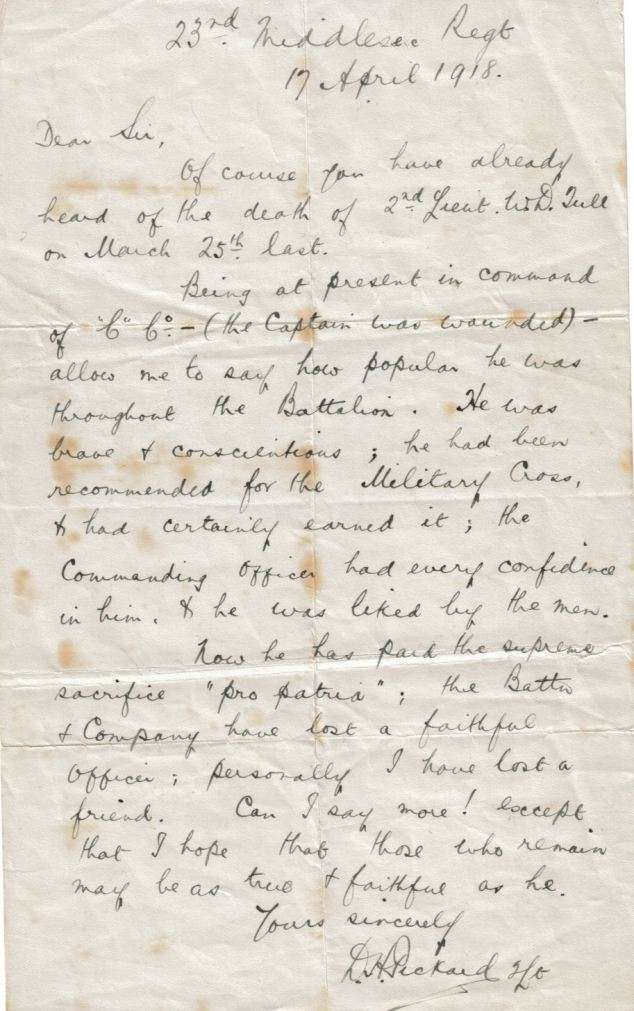 23rd Middlesex Regt
17 April 1918.
Dear Sir,
Of course you have already
heard of the death of 2nd Lieut. W.D. Tull
on March 25th last.
Being at present in command
of "C" Co. - (the Captain was wounded) -
allow me to say how popular he was
throughout the Battalion. He was
brave & conscientious ; he had been
recommended for the Military Cross,
& had certainly earned it ; the
Commanding Officer had every confidence
in him, & he was liked by the men.
Now he has paid the supreme
sacrifice "pro patria" ; the Battn
& Company have lost a faithful
Officer ; personally I have lost a
friend. Can I say more ! except
that I hope that those who remain
may be as true & faithful as he.
Yours sincerely
D.H. Pickard 2/Lt